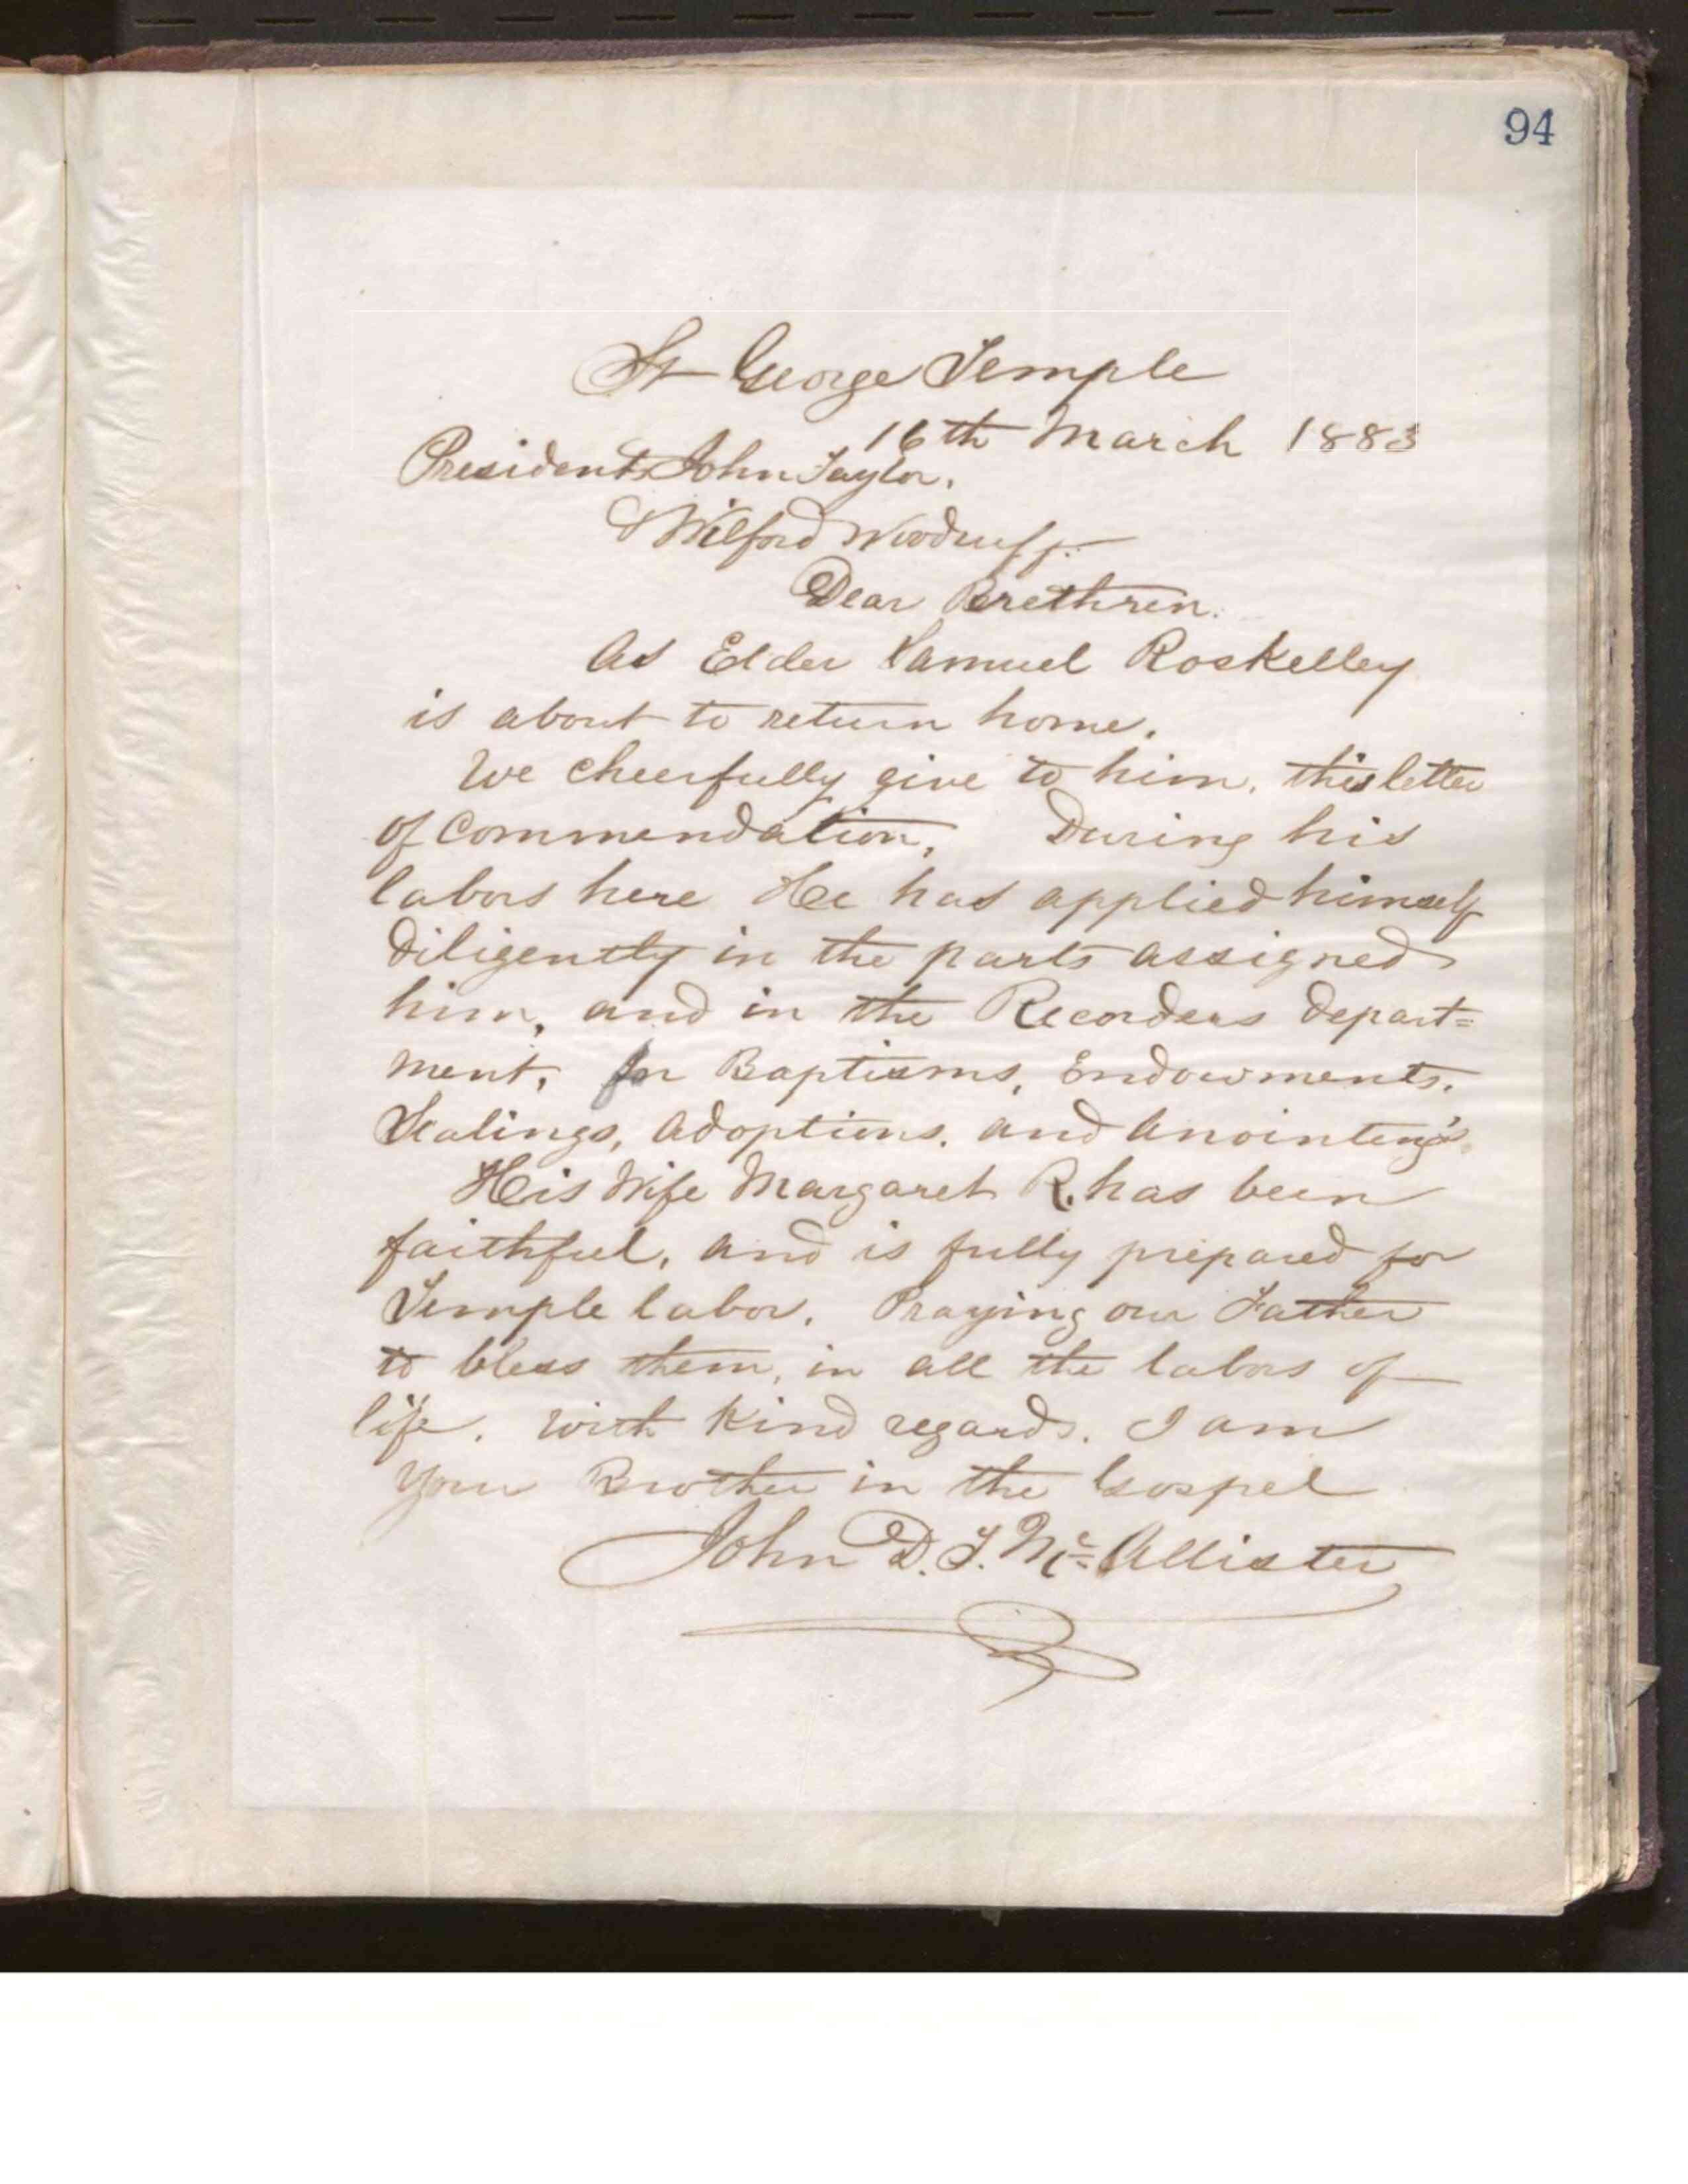 94
St George Temple
16th March 1883
Presidents John Taylor.
& Wilford Woodruff.
Dear Brethren.
As Elder Samuel Roskelley
is about to return home.
We cheerfully give to him, this letter
of Commendation, During his
labors here He has applied himself
diligently in the parts assigned
him, and in the Recorders depart=
ment, for Baptisms, Endowments,
Sealings, adoptions, and anointing's.
His Wife Margaret R. has been
faithful, and is fully prepared for
Temple labor. Praying our Father
to bless them, in all the labors of
life. With Kind regards. I am
Your Brother in the Gospel
John D. T. McAllister